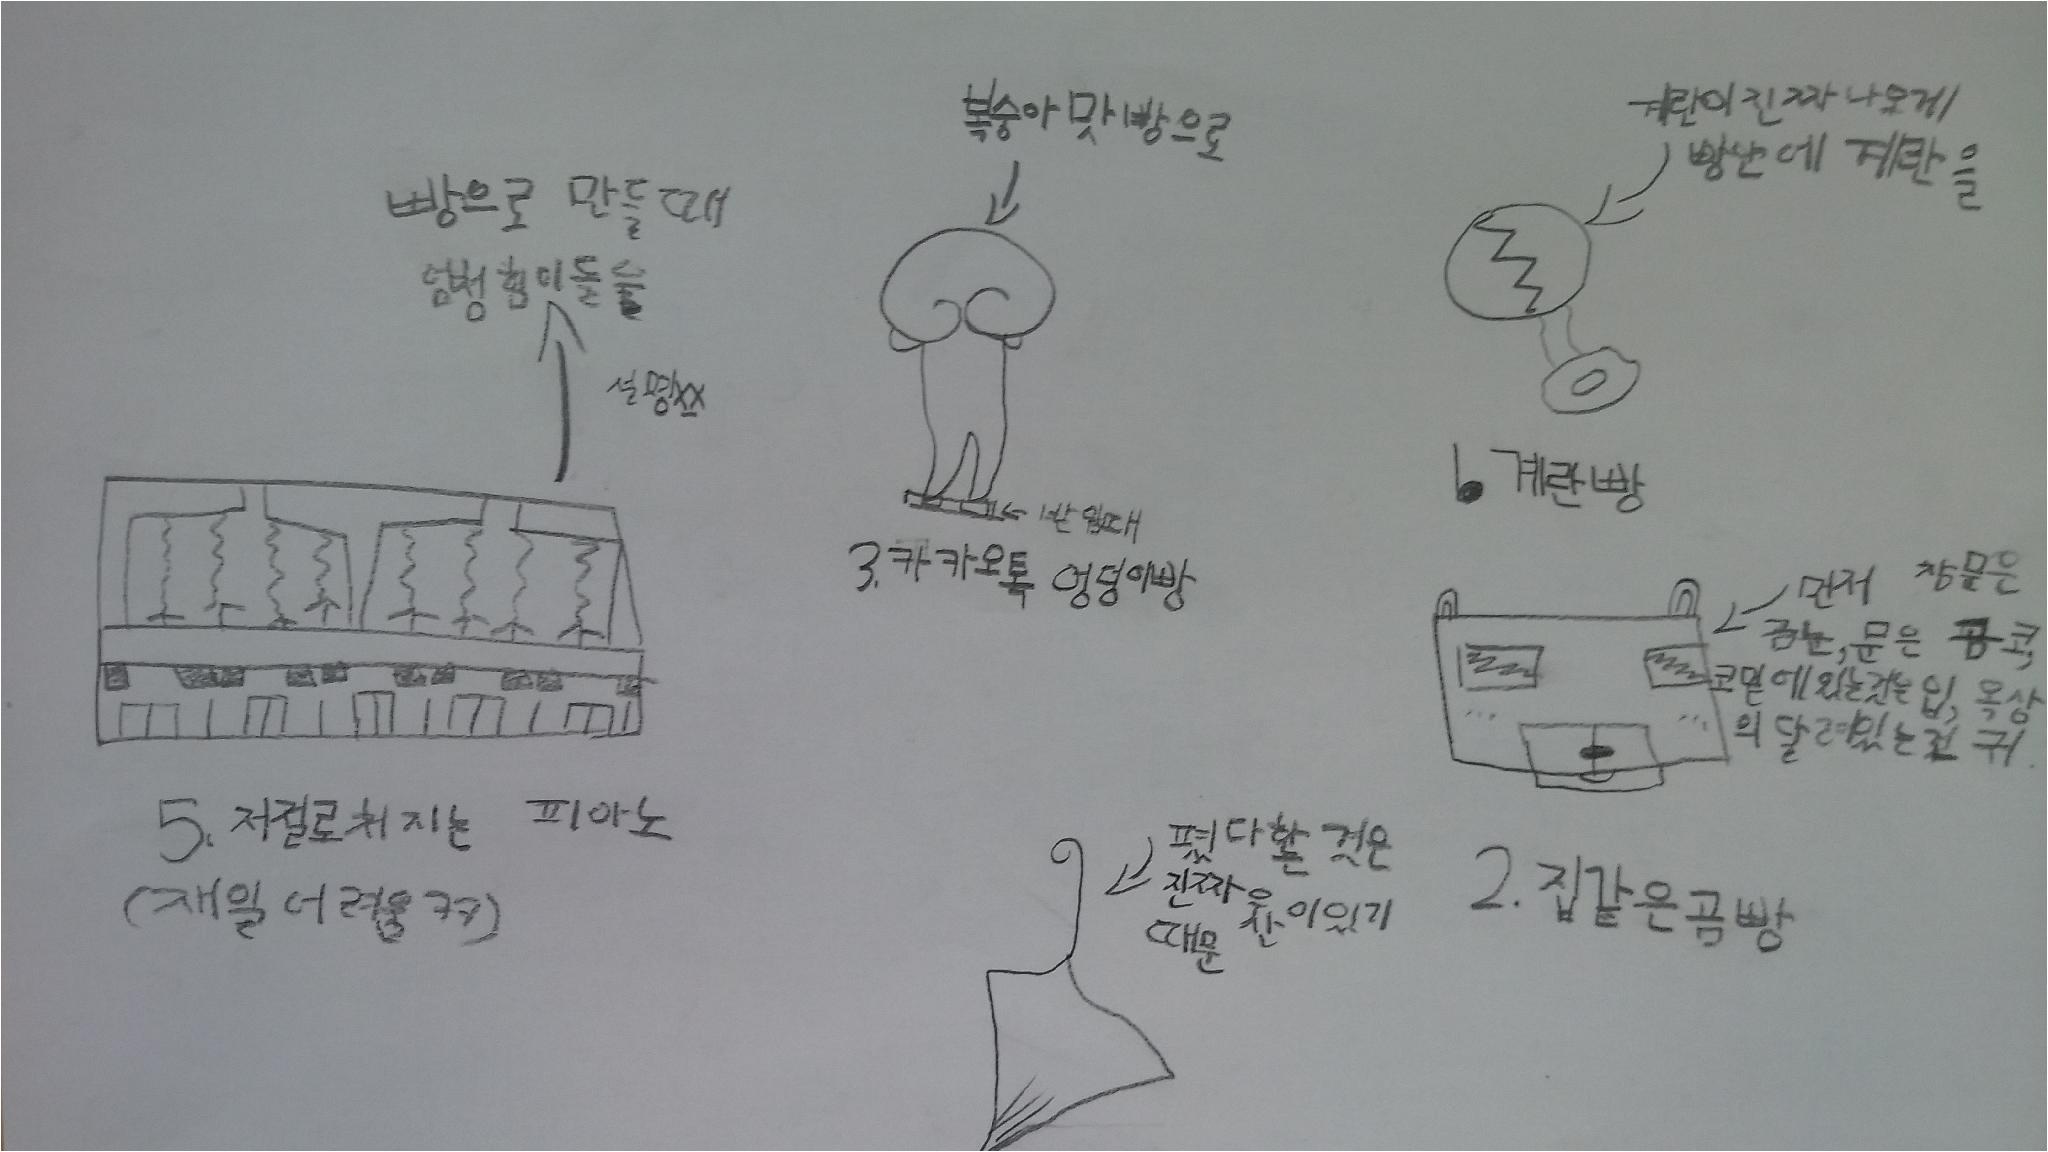 빵으로 만들때
엄청 힘이들
설명xx
5. 저절로쳐지는 피아노
(재일 어려움ㅋㅋ)
복숭아 맛 빵으로
3. 카카오톡 엉덩이빵
계란이 진짜 나오게
빵안에 계란을
6. 계란빵
먼저 창문은
곰눈, 문은 곰코,
코밑에있는것는 입, 옥상
의 달려있는건 귀.
2. 집같은곰빵
폈다한 것은
진짜 우산이있기
때문